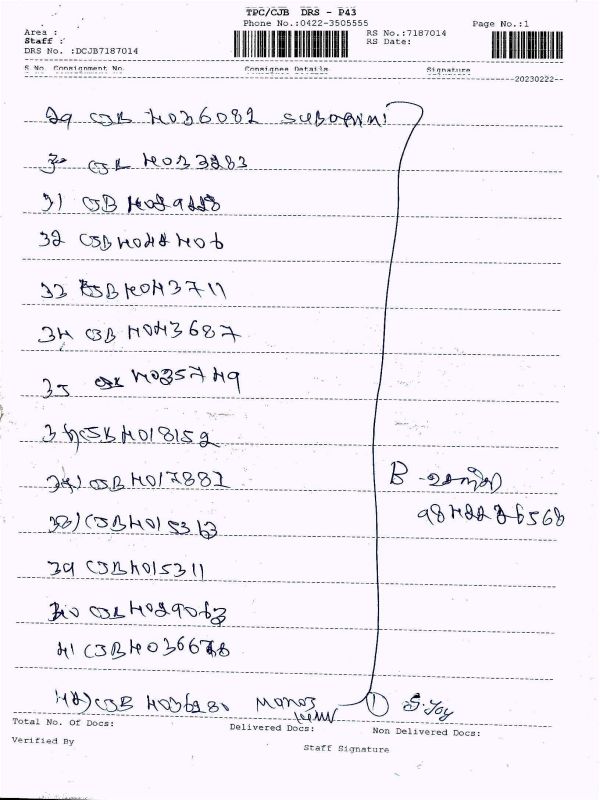 TPC/CJB DRS - P43
Phone No.:0422-3505555
Page No.:1
Area :
Staff :
DRS No. :DCJB7187014
RS No.:7187014
RS Date:
S No. Consignment No. Consignee Details Signature
20230222
29 CJB 4036082
CJB 4033283
31 CJB 4029228
32 CJB 4042406
33 CJB 4043711
34 CJB 4043687
35 CJB 4035749
36) CJB 4018152
CJB 4017882
38) CJB 4015313
39 CJB 4015311
CJB 4029063
41 CJB 4036628
42) CJB 4036280 Manoj ① S. Joy
Total No. Of Docs: Delivered Docs: Non Delivered Docs:
Verified By Staff Signature